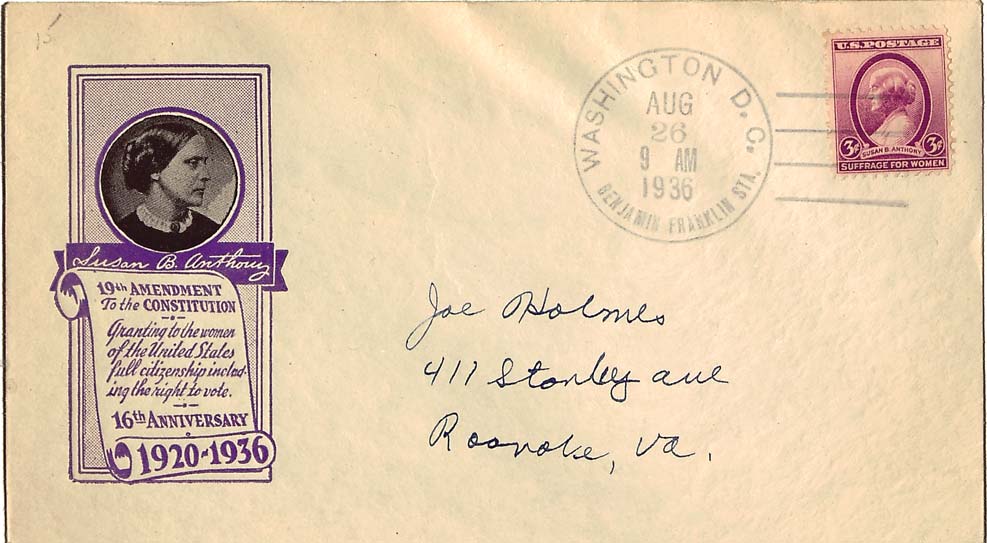 15
Susan B. Anthony
19th AMENDMENT
To the CONSTITUTION
Granting to the women
of the United States
full citizenship includ-
ing the right to vote.
16th ANNIVERSARY
1920-1936
WASHINGTON D.C.
AUG
26
9 AM
1936
BENJAMIN FRANKLIN STA.
U.S. POSTAGE
3¢ 3¢
SUSAN B. ANTHONY
SUFFRAGE FOR WOMEN
Joe Holmes
411 Stanley ave
Roanoke, Va.